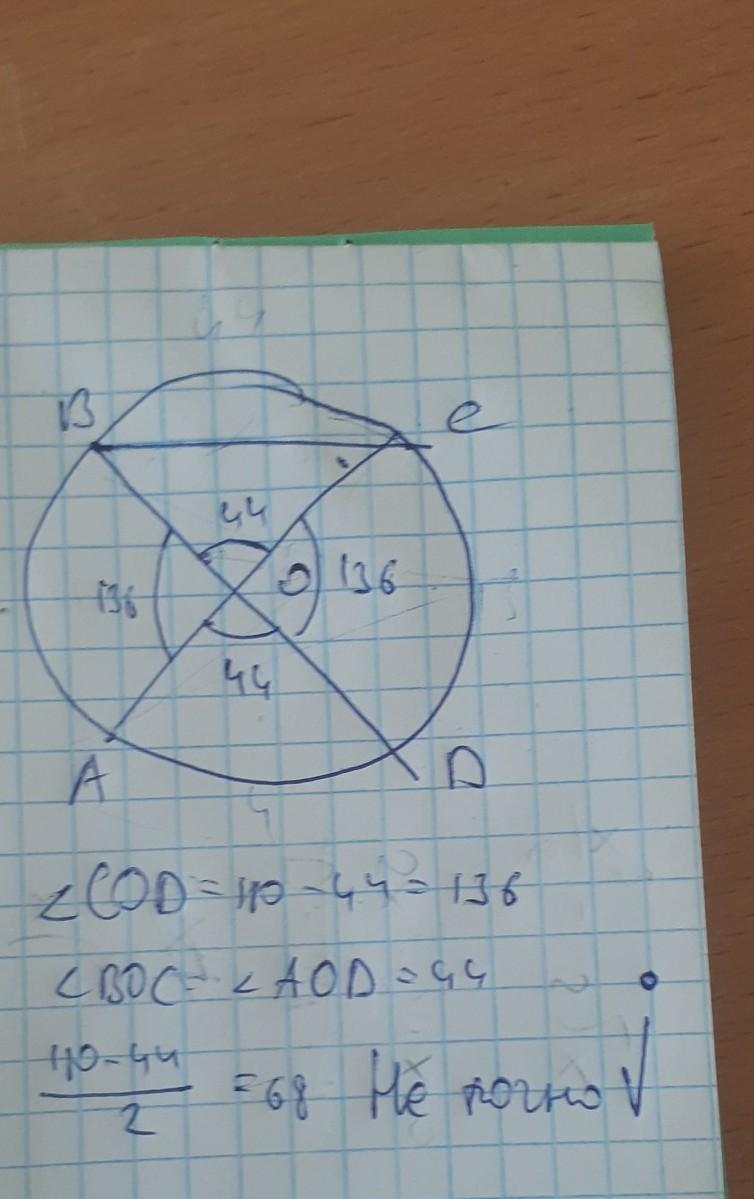 B
C
44
136
O
136
44
A
D
∠COD = 110 - 44 = 136
∠BOC = ∠AOD = 44
110-44
2
= 68 Не точно √